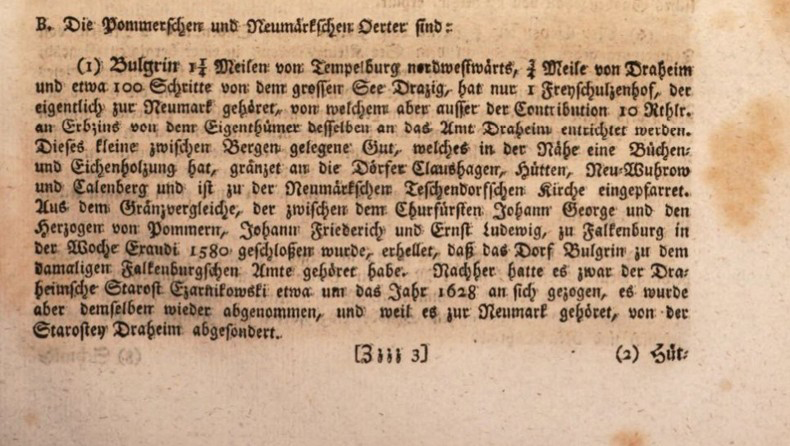 B. Die Pommerschen und Neumärkschen Oerter sind:
(1) Bulgrin 1¼ Meilen von Tempelburg nordwestwärts, ¾ Meile von Draheim
und etwa 100 Schritte von dem grossen See Drazig, hat nur 1 Freyschulzenhof, der
eigentlich zur Neumark gehöret, von welchem aber ausser der Contribution 10 Rthlr.
an Erbzins von dem Eigenthümer desselben an das Amt Draheim entrichtet werden.
Dieses kleine zwischen Bergen gelegene Gut, welches in der Nähe eine Büchen-
und Eichenholzung hat, gränzet an die Dörfer Claushagen, Hütten, Neu-Wuhrow
und Calenberg und ist zu der Neumärkschen Teschendorfschen Kirche eingepfarret.
Aus dem Gränzvergleiche, der zwischen dem Churfürsten Johann George und den
Herzogen von Pommern, Johann Friederich und Ernst Ludewig, zu Falkenburg in
der Woche Exaudi 1580 geschloßen wurde, erhellet, daß das Dorf Bulgrin zu dem
damaligen Falkenburgschen Amte gehöret habe. Nachher hatte es zwar der Dra-
heimsche Starost Czarnikowski etwa um das Jahr 1628 an sich gezogen, es wurde
aber demselben wieder abgenommen, und weil es zur Neumark gehöret, von der
Starostey Draheim abgesondert.
[Zzzz 3] (2) Hüt-